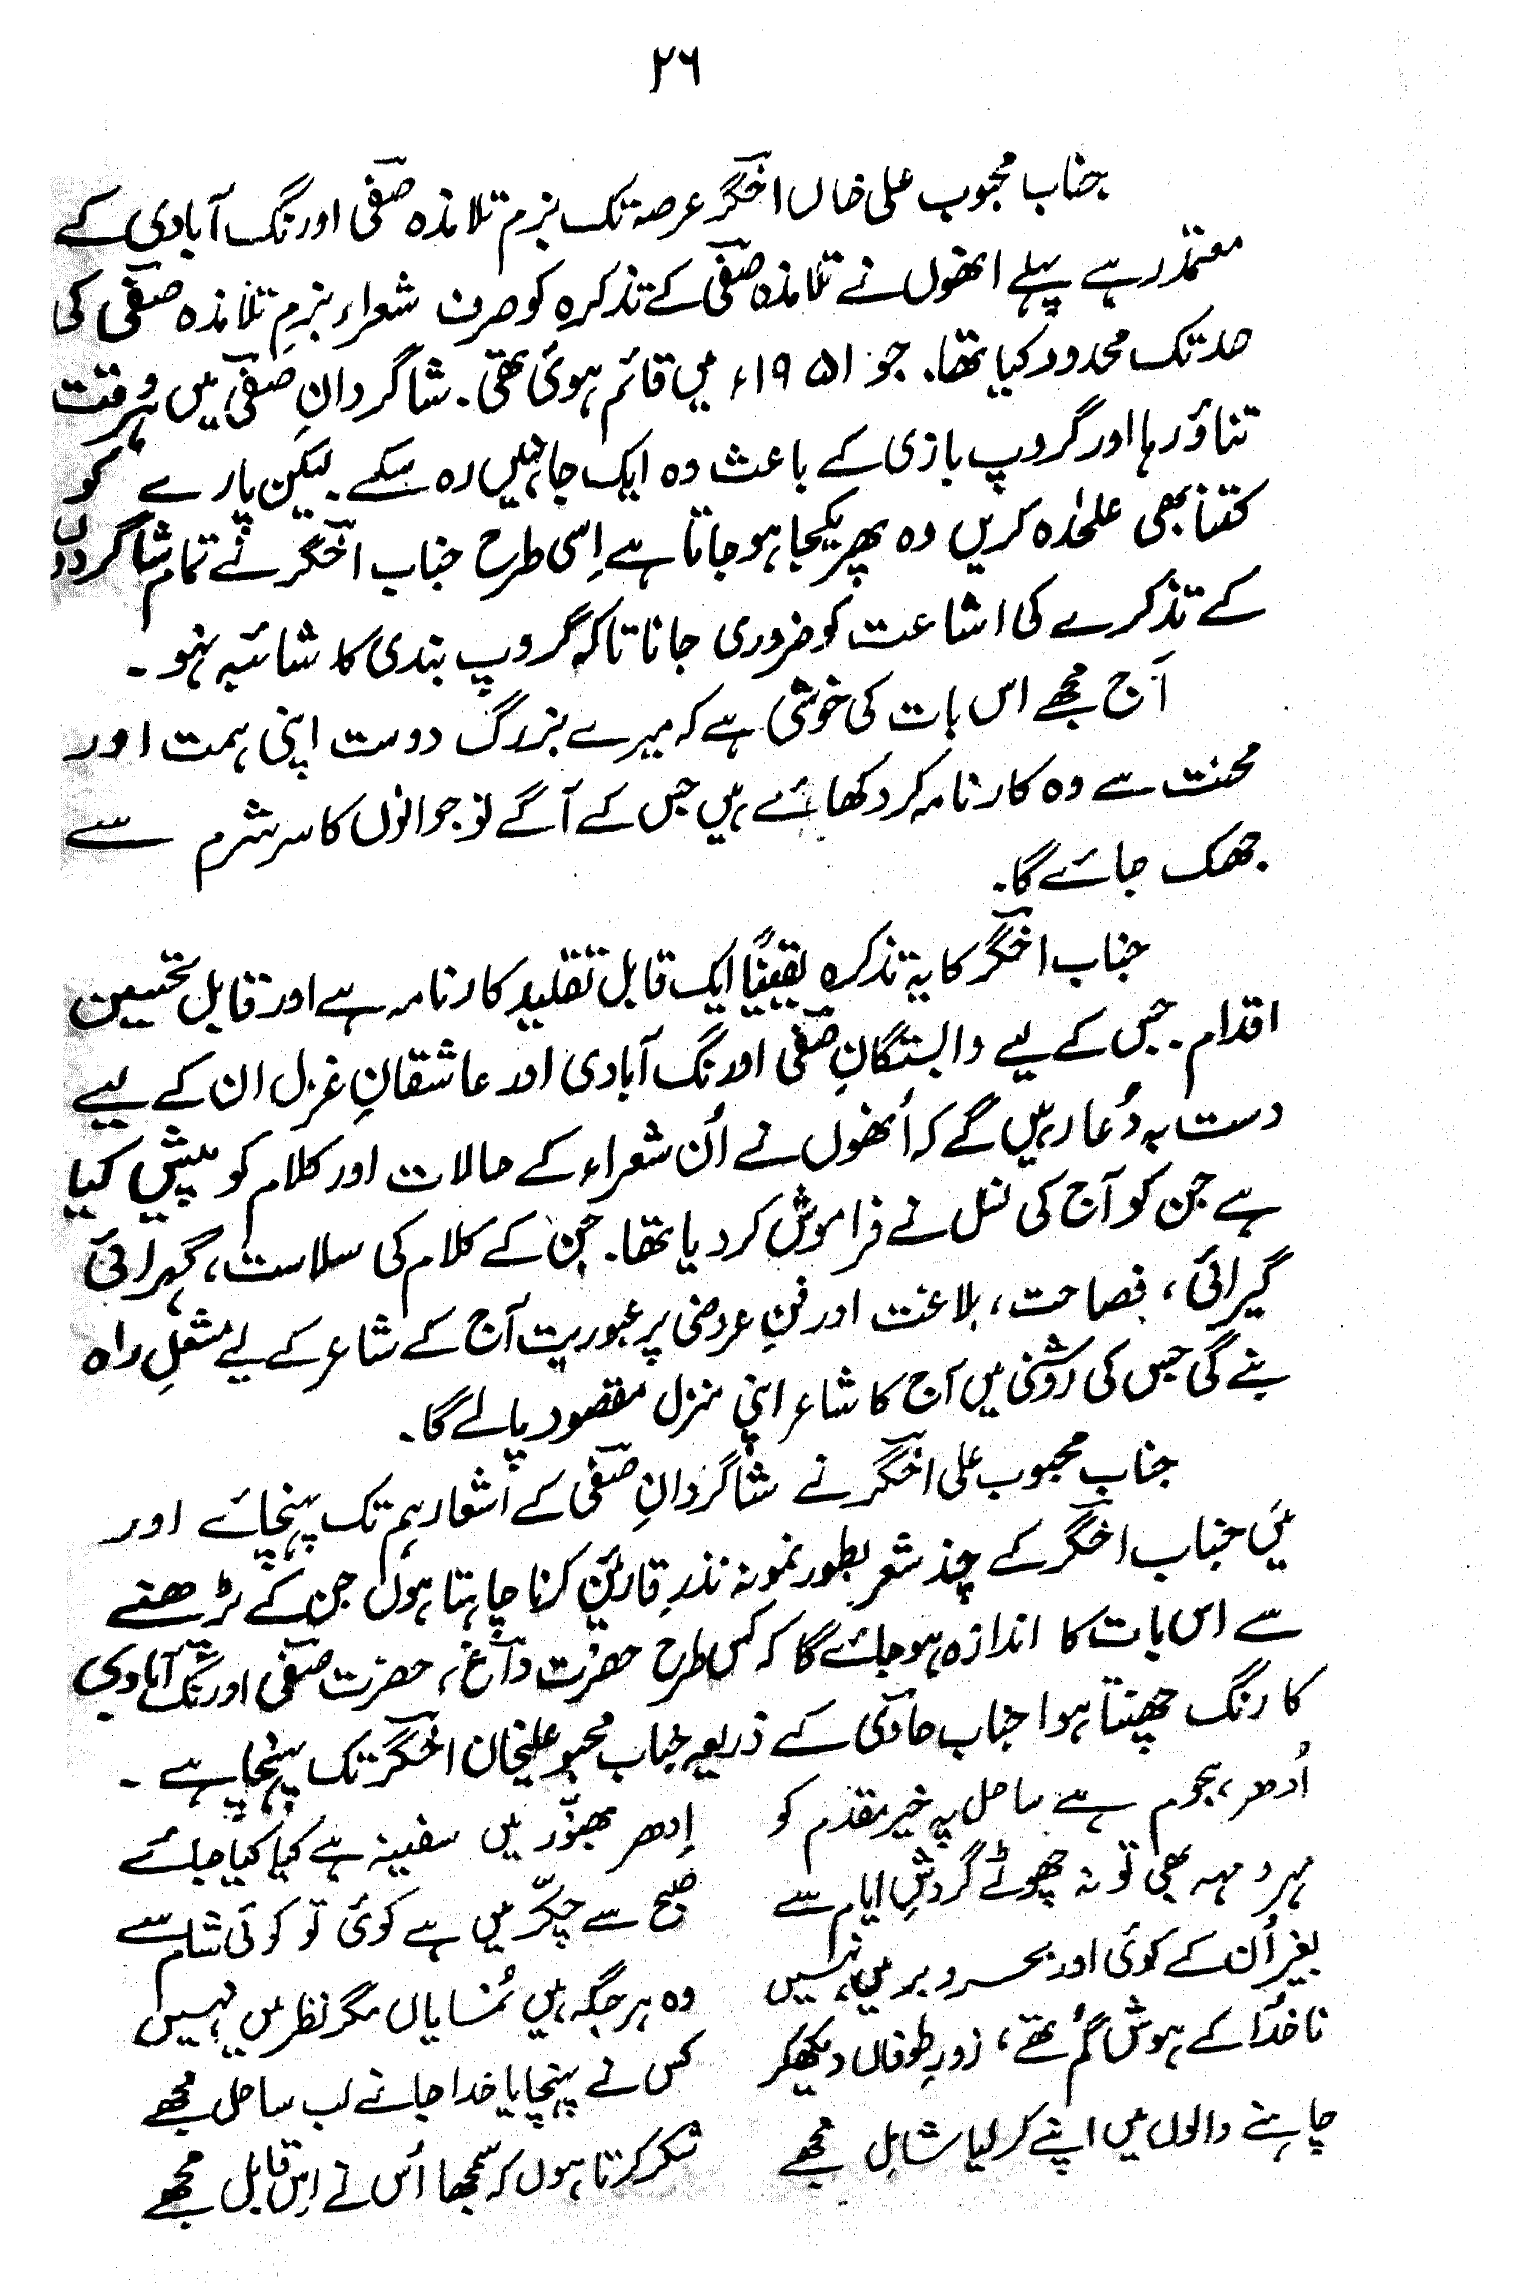 ۲۶
جناب محبوب علی خاں اخگر عرصہ تک بزم تلامذہ صفی اورنگ آبادی کے
معتمد رہے پہلے انھوں نے تلامذہ صفی کے تذکرہ کو صرف شعراء بزمِ تلامذہ صفی کی
حد تک محدود کیا تھا۔ جو ۱۹۵۱ء میں قائم ہوئی تھی۔ شاگردانِ صفی میں ہر وقت
تناؤ رہا اور گروپ بازی کے باعث وہ ایک جا نہیں رہ سکے۔ لیکن پارے کو
کتنا بھی علیحٰدہ کریں وہ پھر یکجا ہو جاتا ہے اِسی طرح جناب اخگر نے تمام شاگردوں
کے تذکرے کی اشاعت کو ضروری جانا تاکہ گروپ بندی کا شائبہ نہو۔
آج مجھے اس بات کی خوشی ہے کہ میرے بزرگ دوست اپنی ہمت اور
محنت سے وہ کارنامہ کر دکھائے ہیں جس کے آگے نوجوانوں کا سر شرم سے
جھک جائے گا۔
جناب اخگر کا یہ تذکرہ یقیناً ایک قابل تقلید کارنامہ ہے اور قابل تحسین
اقدام۔ جس کے لیے وابستگانِ صفی اورنگ آبادی اور عاشقانِ غزل ان کے لیے
دست بہ دُعا رہیں گے کہ اُنھوں نے اُن شعراء کے حالات اور کلام کو پیش کیا
ہے جن کو آج کی نسل نے فراموش کر دیا تھا۔ جن کے کلام کی سلاست، گہرائی
گیرائی، فصاحت، بلاغت اور فنِ عروض پر عبوریت آج کے شاعر کے لیے مشعلِ راہ
بنے گی جس کی روشنی میں آج کا شاعر اپنی منزل مقصود پالے گا۔
جناب محبوب علی اخگر نے شاگردانِ صفی کے اشعار ہم تک پہنچائے اور
میں جناب اخگر کے چند شعر بطور نمونہ نذرِ قارئین کرنا چاہتا ہوں جن کے پڑھنے
سے اس بات کا اندازہ ہو جائے گا کہ کس طرح حضرت داغ، حضرت صفی اورنگ آبادی
کا رنگ چھنتا ہوا جناب حاوی کے ذریعہ جناب محبوب علیخان اخگر تک پہنچا ہے۔
اُدھر، ہجوم ہے ساحل پہ خیر مقدم کو اِدھر بھنور میں سفینہ ہے کیا کیا جائے
مہر و مہہ بھی تو نہ چھوٹے گردشِ ایام سے صبح سے چکّر میں ہے کوئی تو کوئی شام سے
بغیر اُن کے کوئی اور بحر و بر میں نہیں وہ ہر جگہ ہیں نُمایاں مگر نظر میں نہیں
ناخُدا کے ہوش گُم تھے، زورِ طوفاں دیکھکر کس نے پہنچایا خدا جانے لب ساحل مجھے
چاہنے والوں میں اپنے کر لیا شاملِ مجھے شکر کرتا ہوں کہ سمجھا اُس نے اِس قابل مجھے